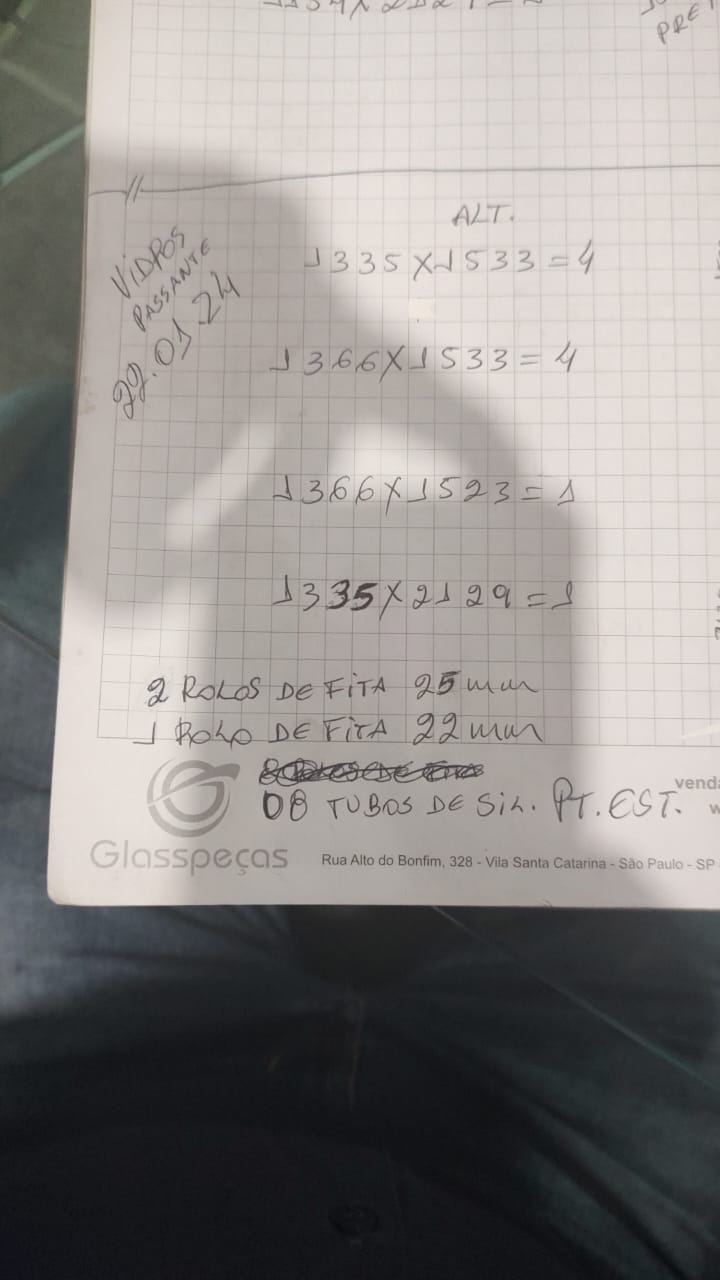 ALT.
VIDROS
PASSANTE
22.01.24
1335X1533=4
1366X1533=4
1366X1523=1
1335X2129=1
2 ROLOS DE FITA 25mm
1 ROLO DE FITA 22mm
08 TUBOS DE SIL. PT. EST.
Glasspeças
Rua Alto do Bonfim, 328 - Vila Santa Catarina - São Paulo - SP